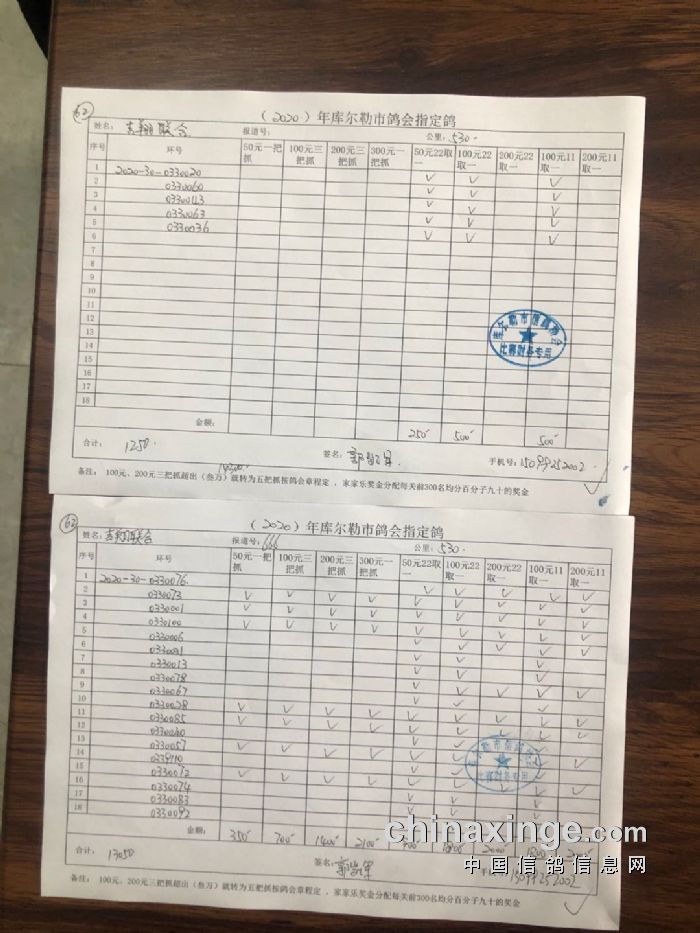 62
（2020）年库尔勒市鸽会指定鸽
姓名：吉翔联合 报道号： 公里：530.
序号 环号 50元一把抓 100元三把抓 200元三把抓 300元一把抓 50元22取一 100元22取一 200元22取一 100元11取一 200元11取一
1 2020-30-0330020 √ √ √
2 0330060 √ √ √
3 0330043 √ √ √
4 0330063 √ √ √
5 0330036 √ √ √
6
7
8
9
10
11
12
13
14
15
16
17
18
库尔勒市信鸽协会
比赛财务专用
金额： 250 500 500
合计： 1250. 签名： 手机号：15099252002
备注： 100元、200元三把抓超出（叁万）就转为五把抓按鸽会章程定 ，家家乐奖金分配每关前300名均分百分子九十的奖金
62
（2020）年库尔勒市鸽会指定鸽
姓名：吉翔联合 报道号：666 公里：530.
序号 环号 50元一把抓 100元三把抓 200元三把抓 300元一把抓 50元22取一 100元22取一 200元22取一 100元11取一 200元11取一
1 2020-30-0330076.
2 0330073
3 0330001
4 0330100
5 0330006
6 0330081
7 0330013
8 0330078
9 0330067
10 0330028
11 0330085
12 0330040
13 0330057
14
15 0330072
16 0330074
17 0330083
18 0330092
金额： 350 700 1400 2100
合计： 13050 签名： 手机号：15099252002
备注： 100元、200元三把抓超出（叁万）就转为五把抓按鸽会章程定 ，家家乐奖金分配每关前300名均分百分子九十的奖金
chinaxinge.com
中国信鸽信息网